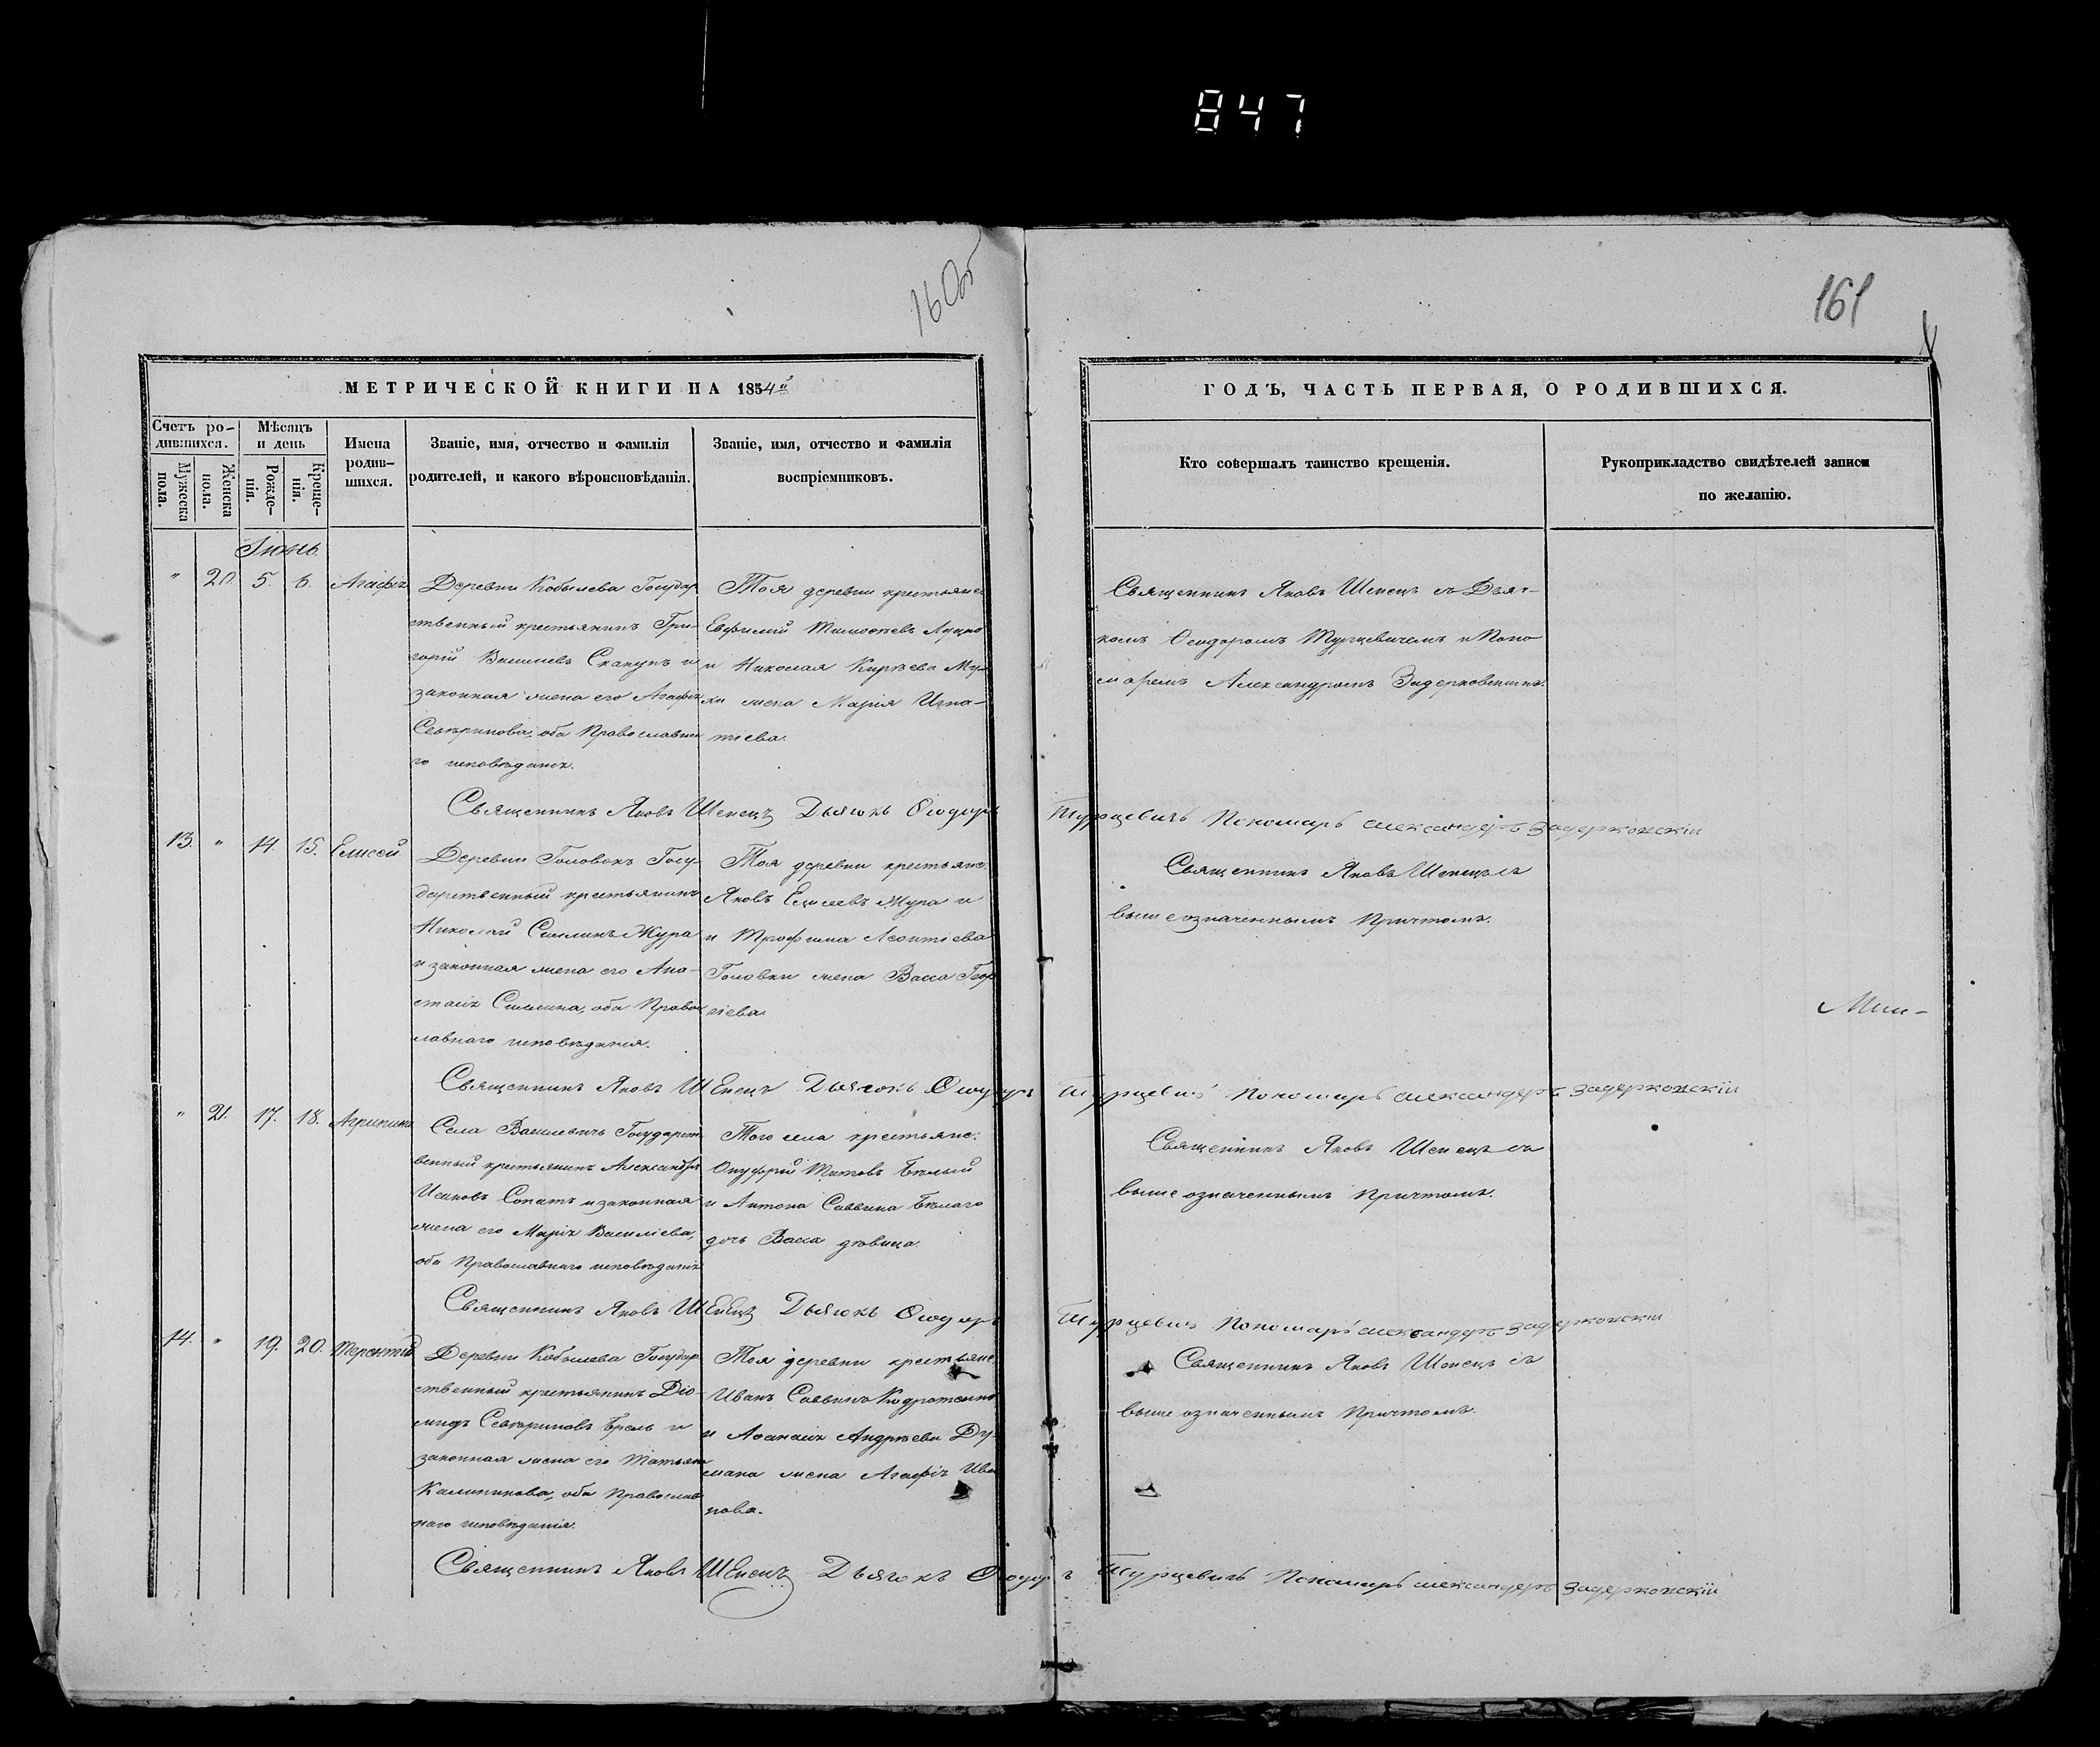 847
160об
161
МЕТРИЧЕСКОЙ КНИГИ НА 1854й
ГОДЪ, ЧАСТЬ ПЕРВАЯ, О РОДИВШИХСЯ.
Счетъ ро-
дившихся.
Мужеска
пола.
Женска
пола.
Мѣсяцъ
и день
Рожде-
нія.
Креще-
нія.
Имена
родив-
шихся.
Званіе, имя, отчество и фамилія
родителей, и какого вѣроисповѣданія.
Званіе, имя, отчество и фамилія
воспріемниковъ.
Кто совершалъ таинство крещенія.
Рукоприкладство свидѣтелей записи
по желанію.
Іюнь.
" 20. 5. 6. Агафія
Деревни Кобылева Государ
ственный крестьянинъ Гри-
горій Васильевъ Скакунъ и
законная жена его Агафія
Севѣринова, оба Православна
го исповѣданія.
Тоя деревни крестьяне
Евфимій Тимоѳеевъ
и Николая Кирѣева
жена Марія Игна-
тіева.
Священникъ Яковъ Шепецъ съ Дьяч-
комъ Ѳеодоромъ Турцевичемъ и Поно
маремъ Александромъ Задерковскимъ.
Священникъ Яковъ Шепецъ Дьячокъ Ѳеодоръ Турцевичъ Пономарь Александръ Задерковскій
13. " 14. 15. Елисей
Деревни Головокъ Госу-
дарственный крестьянинъ
Николай Жура
и законная жена его Ана-
стасія оба Правос
лавнаго исповѣданія.
Тоя деревни крестьяне:
Яковъ Елисеевъ Жура и
и Трофима Леонтіева
Головки жена Васса Геор
гіева.
Священникъ Яковъ Шепецъ съ
вышеозначеннымъ Причтомъ.
Мин-
Священникъ Яковъ Шепецъ Дьячокъ Ѳеодоръ Турцевичъ Пономарь Александръ Задерковскій
" 21. 17. 18. Агрипина
Села Василевичъ Государст
венный крестьянинъ Александръ
Исаковъ Сопатъ и законная
жена его Марія Василіева,
оба Православнаго исповѣданія
Того села крестьяне:
Онуфрій Титовъ Бѣлый
и Антона Саввина Бѣлаго
дочь Васса дѣвица.
Священникъ Яковъ Шепецъ съ
вышеозначеннымъ Причтомъ.
Священникъ Яковъ Шепецъ Дьячокъ Ѳеодоръ Турцевичъ Пономарь Александръ Задерковскій
14. " 19. 20. Терентій
Деревни Кобылева Государ
ственный крестьянинъ Діо-
мидъ Севѣриновъ Брель и
законная жена его Татьяна
Калиникова, оба Православ
наго исповѣданія.
Тоя деревни крестьяне
Иванъ Саввинъ
и Аѳанасія Андрѣева Ду-
мана жена Агафія Ива
нова.
Священникъ Яковъ Шепецъ съ
вышеозначеннымъ Причтомъ.
Священникъ Яковъ Шепецъ Дьячокъ Ѳеодоръ Турцевичъ Пономарь Александръ Задерковскій